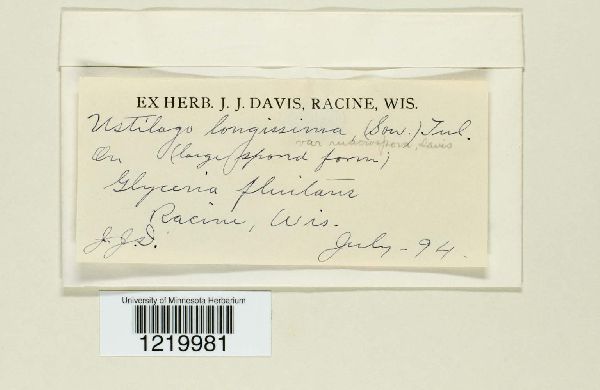 EX HERB. J. J. DAVIS, RACINE, WIS.
Ustilago longissima, (Sow.) Tul.
var macrospora, Davis
On (large spored form)
Glyceria fluitans
Racine, Wis.
J.J.D. July - 94.
University of Minnesota Herbarium
1219981